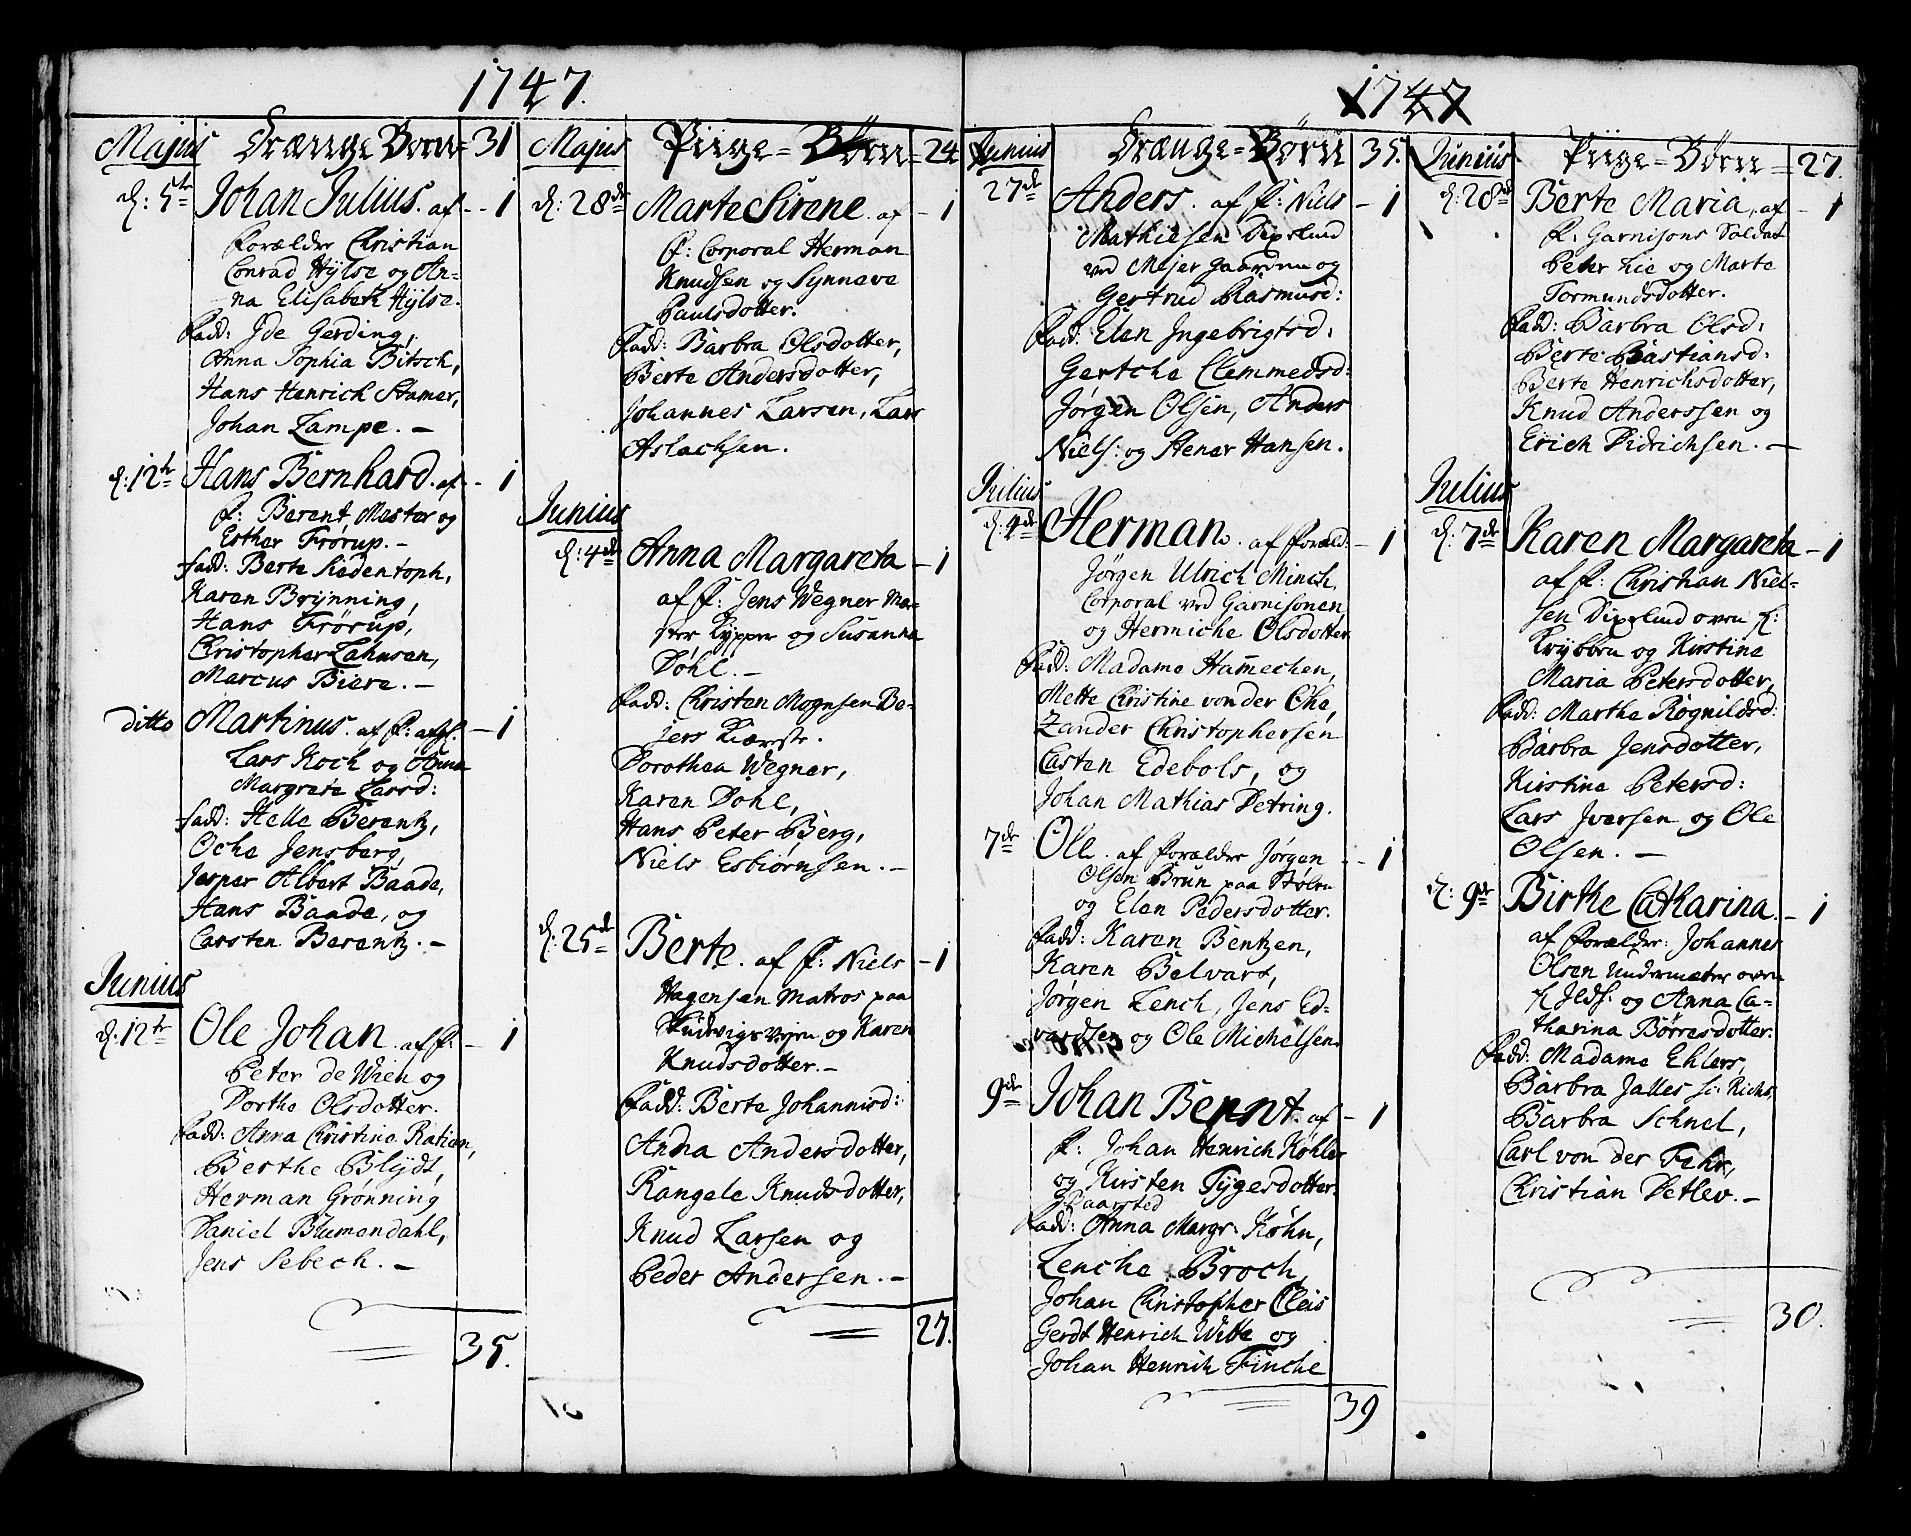 1747.
Majus Drænge Børn 31
d: 5te Johan Julius. af - 1
Forældre Christian
Conrad Hÿlse og An-
na Elisabeth Hÿlse.
Fadd: Ide Gerding,
Anna Sophia Bitsch,
Hans Henrich Stamer,
Johan Lampe. -
d: 12te Hans Bernhard. af - 1
F: Berent Mester og
Esther Frørup. -
fadd: Berte Siedentoph,
Karen Brÿnning,
Hans Frørup,
Christopher Lahusen,
Marcus Biere. -
ditto Martinus. af F: afgl. - 1
Lars Koch og Anna
Margrete Larsd:
fadd: Helle Berentz,
Oche Jensberg,
Jesper Albert Baade,
Hans Baade, og
Carsten Berentz. -
Junius
d: 12te Ole Johan. af F: - 1
Peter de Wien og
Dorthe Olsdotter.
Fadd: Anna Christine Ration,
Berthe Blÿdt,
Herman Grønning
Daniel Blumendahl,
Jens Sebech. -
35.
Majus Piige-Børn = 24
d: 28de Marte Sirene. af - 1
F: Corporal Herman
Knudsen og Synneve
Paulsdotter.
Fadd: Barbra Olsdotter,
Berte Andersdotter,
Johannes Larsen, Lars
Aslachsen.
Junius
d: 4de Anna Margareta - 1
af F: Jens Wegner Me-
ster Kypper og Susanna
Døhl. -
Fadd: Christen Mognsen Be-
jers Kiæreste.
Dorothea Wegner,
Karen Døhl,
Hans Peter Berg,
Niels Esbiørnsen. -
d: 25de Berte. af F: Niels - 1
Hagensen Matros paa
og Karen
Knudsdotter. -
Fadd: Berte Johannisd:
Anna Andersdotter,
Rangele Knudsdotter,
Knud Larsen og
Peder Andersen. -
27.
1747
Junius Drænge-Børn 35.
27de Anders. af F: Niels - 1
Mathiesen Dipelund
ved Mejer gaarden og
Gertrud Rasmusd:
Fadd: Elen Ingebrigtsd:
Gertche Clemmedsd:
Jørgen Olsen, Anders
Niels: og Stener Hansen.
Julius
d: 4de Herman. af Foræld: - 1
Jørgen Ulrich Minch,
Corporal ved Garnisonen
og Hermiche Olsdotter
Fadd: Madame Hamechen,
Mette Christine von der Ohe,
Zander Christophersen
Casten Edebols, og
Johan Mathias Detring.
7de Ole. af Forældre Jørgen - 1
Olsen Brun paa Stølen
og Elen Pedersdotter.
Fadd: Karen Bentzen,
Karen Belvart,
Jørgen Lench, Jens Ed-
vardsen og Ole Michelsen.
9de Johan Bernt. af - 1
F: Johan Henrich Køhler
og Kirsten Tygesdotter.
Baarsted
Fadd: Anna Margr: Køhn,
Lenche Broch,
Johan Christopher Cleis
Gerdt Henrich Witte og
Johan Henrich Finche
39
Junius Piige-Børn = 27.
d: 28de Berte Maria, af - 1
F: Garnisons Soldat
Peter Lie og Marte
Tormundsdotter.
Fadd: Barbra Olsd:
Berte Bastiansd:
Berte Henrichsdotter,
Knud Anderssen og
Erich Didrichsen. -
Julius
d: 7de Karen Margareta - 1
af F: Christian Niel-
sen Dipelund oven f:
Krÿbben og Kirstine
Maria Petersdotter,
Fadd: Marthe Rognildsd:
Barbra Jensdotter,
Kirstine Petersd:
Lars Iversen og Ole
Olsen. -
d: 9de Birthe Catharina. - 1
af Forældre: Johannes
Olsen Undermester oven
f. Ilds: og Anna Ca-
tharina Børresdotter.
Fadd: Madame Ehlers,
Barbra Jalles sc: Richs,
Barbra Schnel,
Carl von der Fehr,
Christian Detlev. -
30.